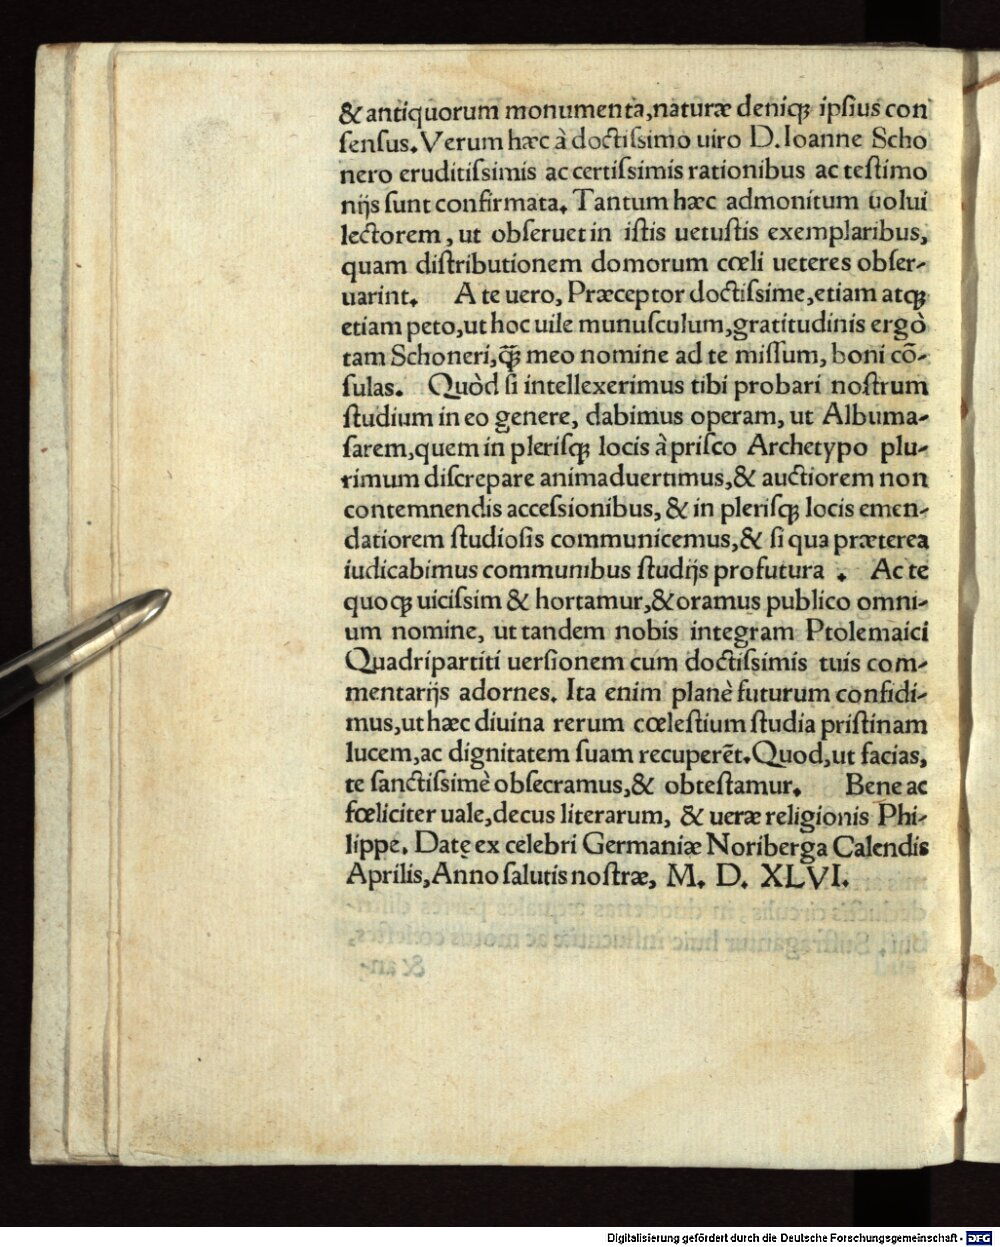 & antiquorum monumenta, naturæ deniqꝫ ipſius con
ſenſus. Verum hæc à doctiſsimo uiro D. Ioanne Scho
nero eruditiſsimis ac certiſsimis rationibus ac teſtimo
nijs ſunt confirmata. Tantum hæc admonitum uolui
lectorem, ut obſeruet in iſtis uetuſtis exemplaribus,
quam diſtributionem domorum cœli ueteres obſer-
uarint. A te uero, Præceptor doctiſsime, etiam atqꝫ
etiam peto, ut hoc uile munuſculum, gratitudinis ergò
tam Schoneri, q̃ꝫ meo nomine ad te miſſum, boni cō-
ſulas. Quòd ſi intellexerimus tibi probari noſtrum
ſtudium in eo genere, dabimus operam, ut Albuma-
ſarem, quem in pleriſqꝫ locis à priſco Archetypo plu-
rimum diſcrepare animaduertimus, & auctiorem non
contemnendis acceſsionibus, & in pleriſqꝫ locis emen-
datiorem ſtudioſis communicemus, & ſi qua præterea
iudicabimus communibus ſtudijs profutura. Ac te
quoqꝫ uiciſsim & hortamur, & oramus publico omni-
um nomine, ut tandem nobis integram Ptolemaici
Quadripartiti uerſionem cum doctiſsimis tuis com-
mentarijs adornes. Ita enim planè futurum confidi-
mus, ut hæc diuina rerum cœleſtium ſtudia priſtinam
lucem, ac dignitatem ſuam recuperēt. Quod, ut facias,
te ſanctiſsimè obſecramus, & obteſtamur. Bene ac
fœliciter uale, decus literarum, & ueræ religionis Phi-
lippe. Datę ex celebri Germaniæ Noriberga Calendis
Aprilis, Anno ſalutis noſtræ, M. D. XLVI.
Digitalisierung gefördert durch die Deutsche Forschungsgemeinschaft - DFG